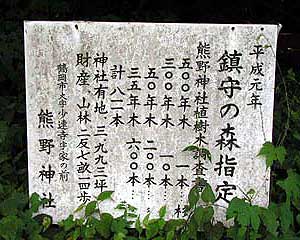 平成元年
鎮守の森指定
熊野神社植樹木調査書
五〇〇年木 一本 杉
三〇〇年木 一〇本
五〇年木 二〇〇本
三五年木 六〇〇本
計 八一一本
神社有地、三、九九三坪
財産、山林 二反七畝二四歩
鶴岡市大字少連寺 家の前
熊野神社